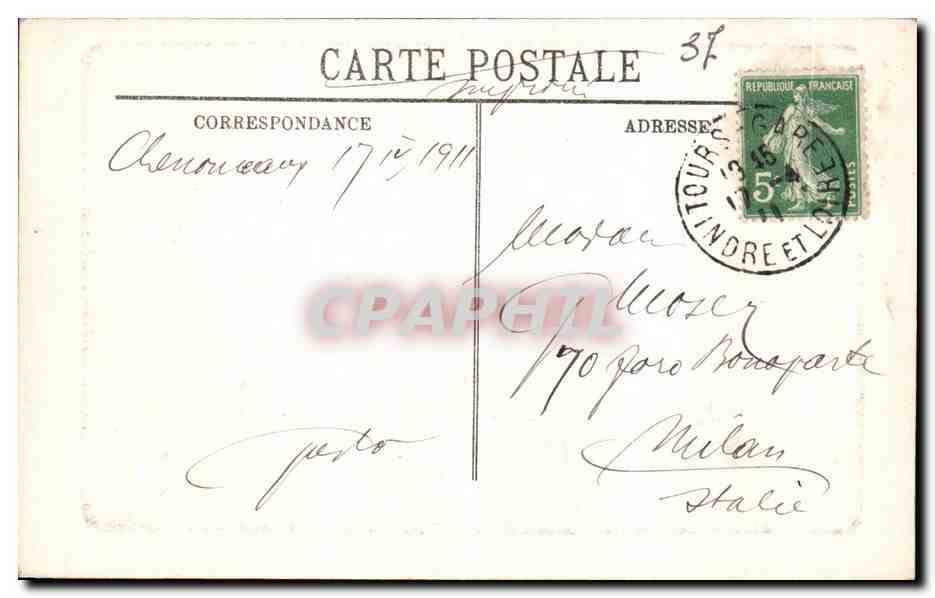 37
CARTE POSTALE
imprimé
CORRESPONDANCE
ADRESSE
REPUBLIQUE FRANÇAISE
5c
POSTES
TOURS-GARE
13 45
17 -4
11
INDRE ET LOIRE
Chenonceaux 17 IV 1911
Madame
Moser
70 foro Bonaparte
Milan
Italie
CPAPHIL